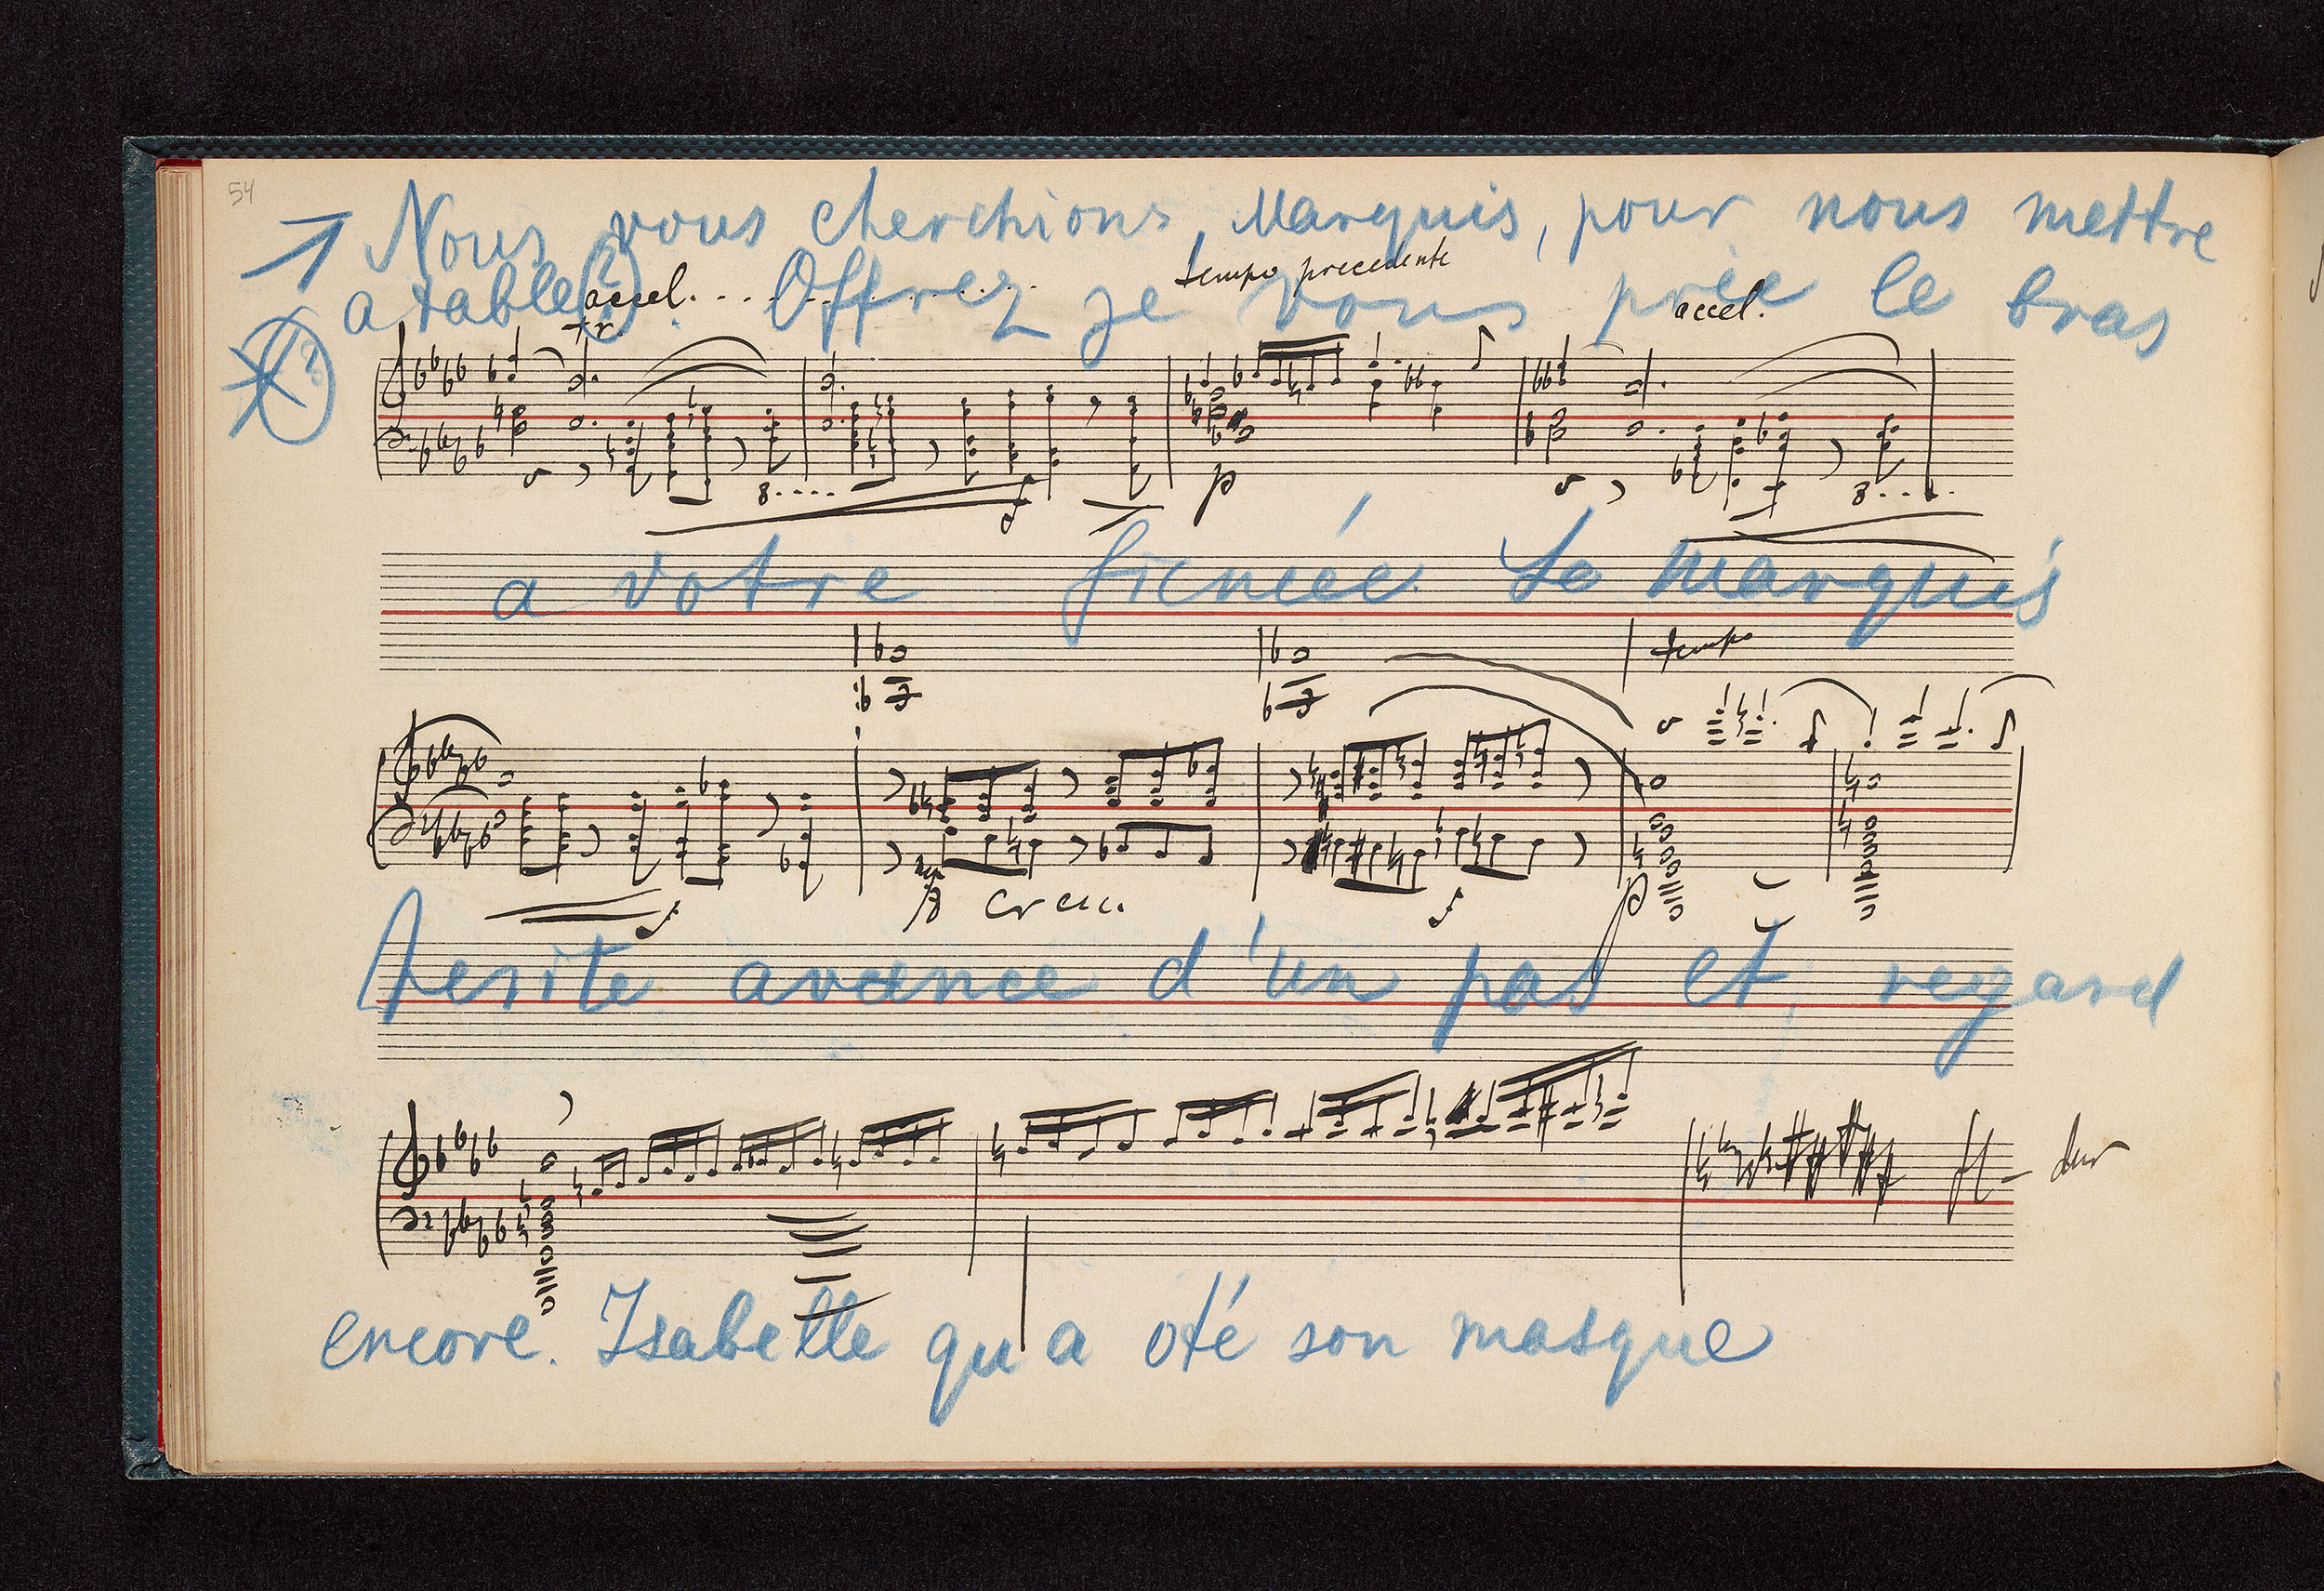 54
Nous vous cherchions, Marquis, pour nous mettre
a table (2). Offrez je vous prie le bras
accel. tempo precedente accel.
tr
8.... f p 8....
a votre fiencée. Le Marquis
tempo
f cresc. f p
hesite avance d'un pas et, regard
dur
encore. Isabelle qu a oté son masque